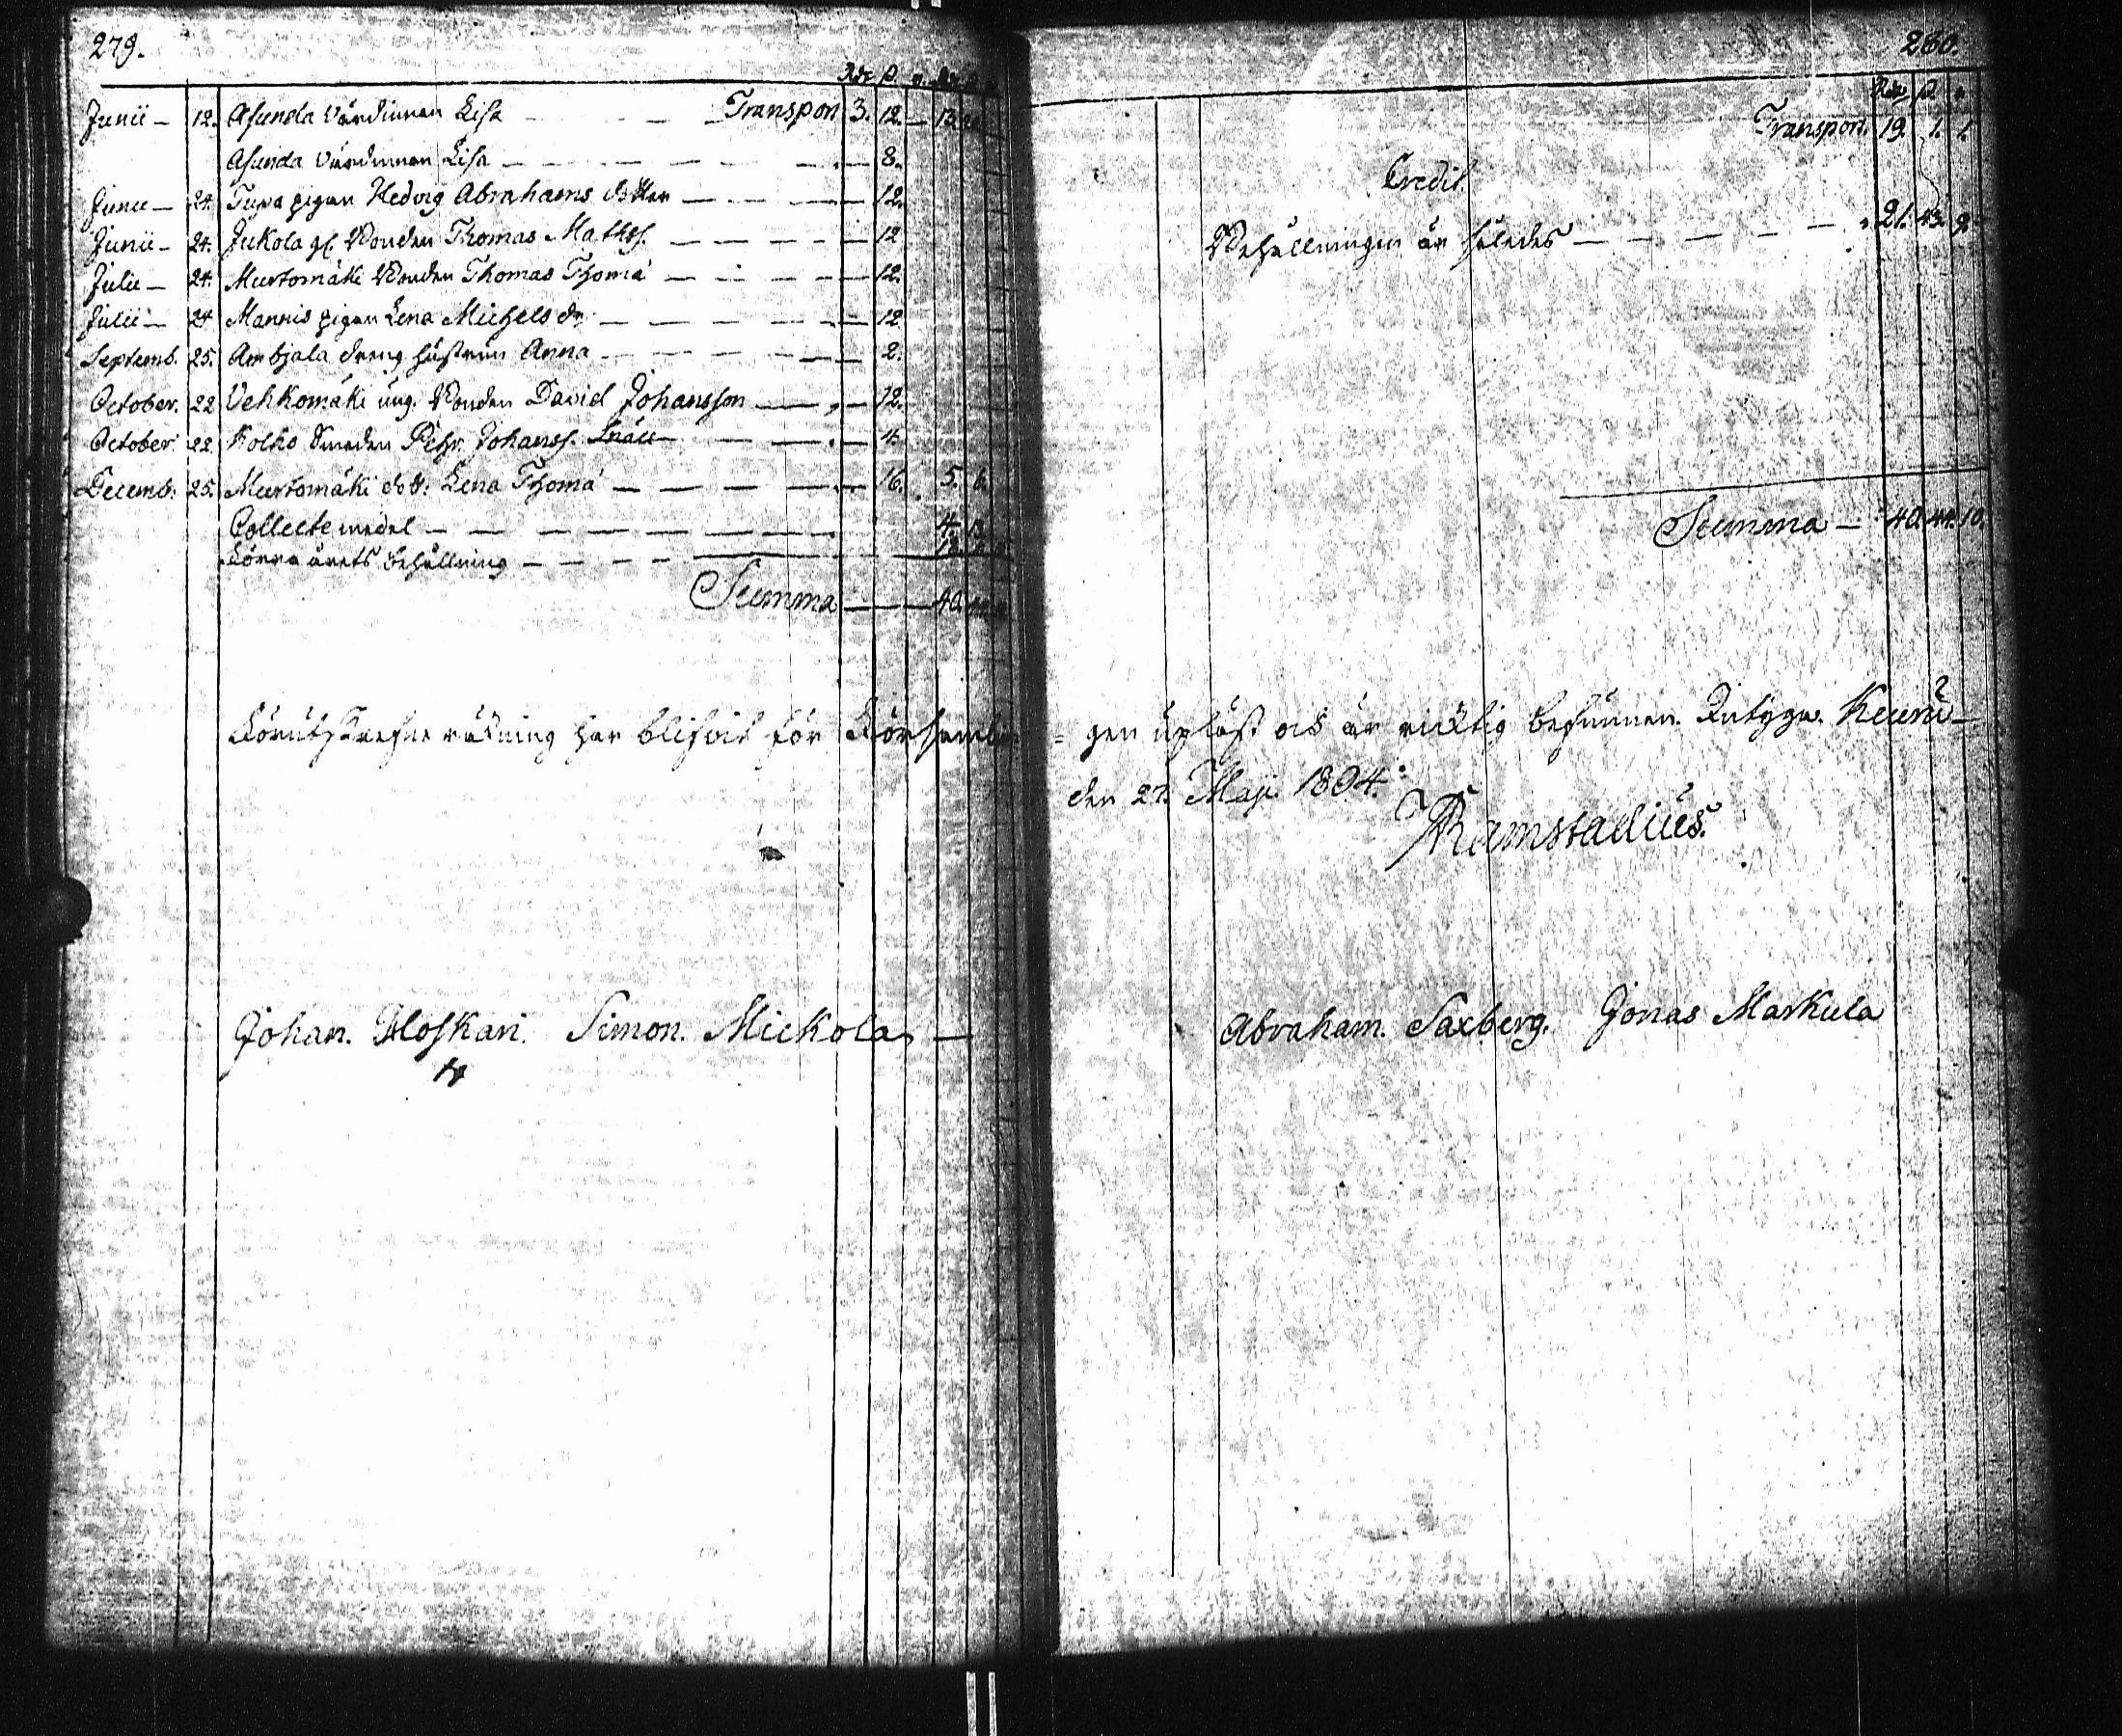 279.
Rdr ß.
Junii — 12. Asunda värdinnan Lisa — Transport 3. 12. — 13.
Asunda värdinnan Lisa — 8.
Junii — 24. pigan Hedvig Abrahams dotter — 12.
Junii — 24. Jukola gl. Bonden Thomas Mathss. — 12
Julii — 24. Murtomäki Bonden Thomas Thomæ — 12.
Julii — 24 Mannis pigan Lena Michels dr — 12
Septemb. 25. Ambjala dreng hustrun Anna — 2.
October. 22 Vehkomäki ung. Bonden David Johansson — 12.
October 22. Kolho Smeden Pehr Johanss. — 4
Decemb: 25. Murtomäki dott: Lena Thomæ — 16. 5. 6.
Collecte medel — 4. 13.
Förra årets behållning —
Summa — 40.
Föruthskrefne räkning har blifvit för Församlin=
Johan. Simon. Mickola —
280.
Rdr ß.
Transport. 19. 1. 1.
Credit.
Behållningen är således — 21. 43. 9.
Summa — 40. 44. 10.
= gen upläst och är richtig befunnen. Intygar. Keuru
den 27. Maji 1804.
Ramstadius.
Abraham. Saxberg. Jonas Markula